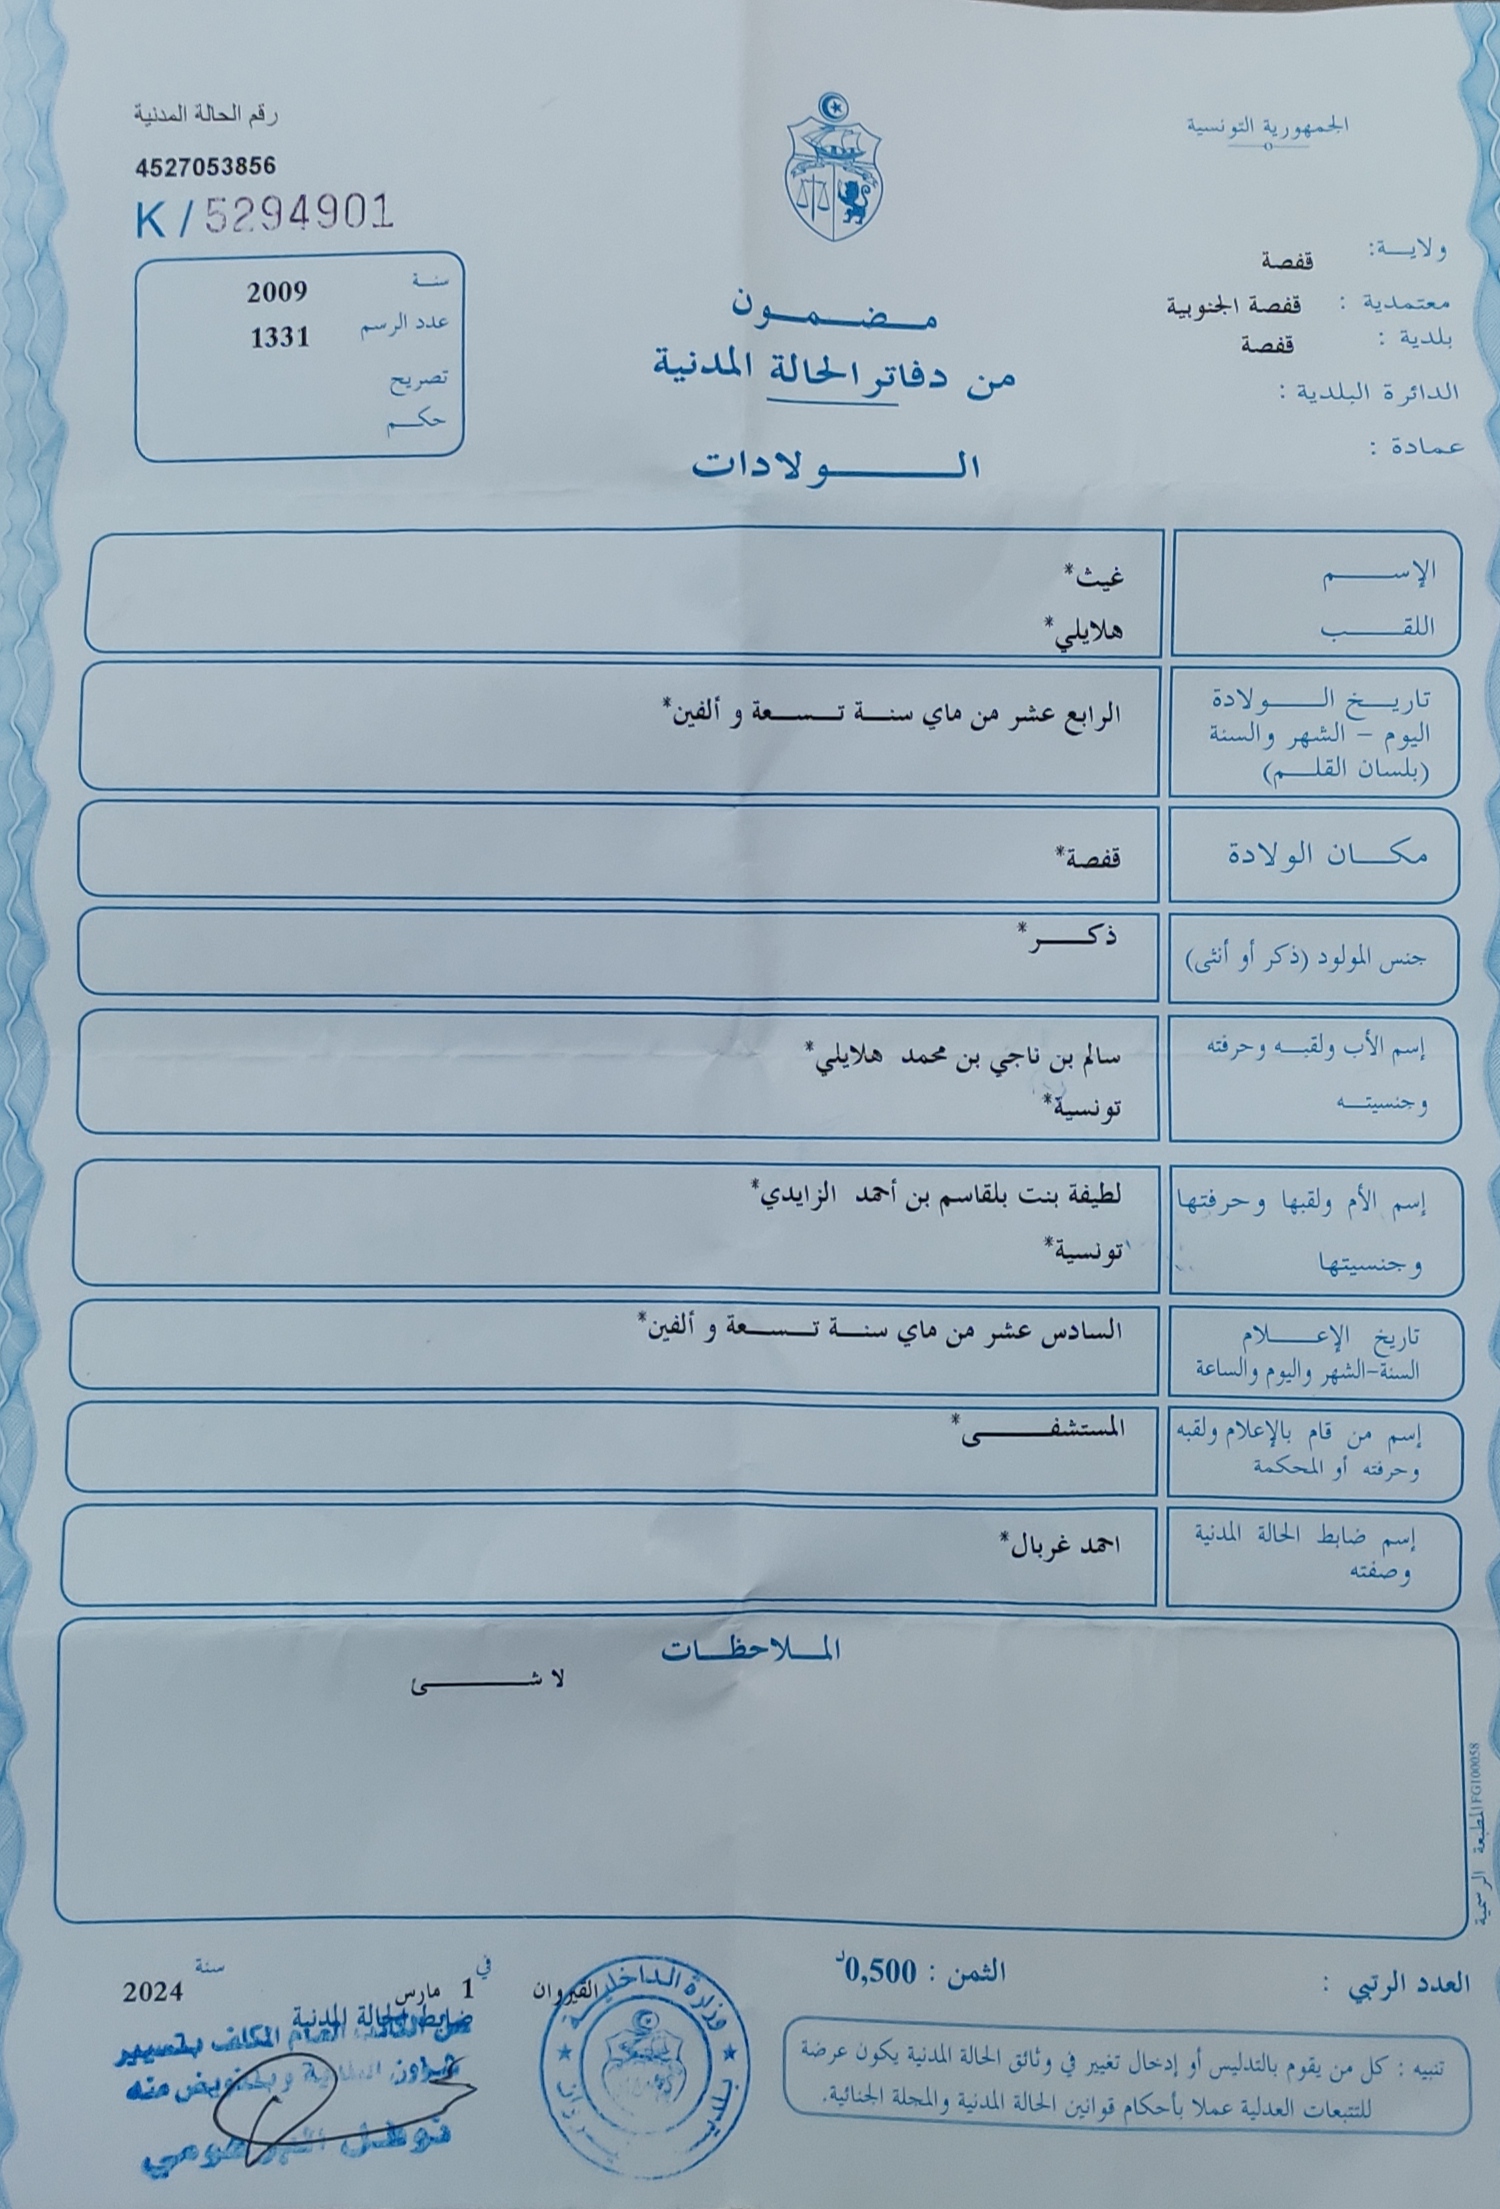 الجمهورية التونسية
رقم الحالة المدنية
4527053856
K / 5294901
ولايـــة: قفصة
معتمدية : قفصة الجنوبية
بلدية : قفصة
الدائرة البلدية :
عمادة :
سنـة 2009
عدد الرسم 1331
تصريح
حكـــم
مـــضـــمـــون
من دفاتر الحالة المدنية
الـــــولادات
الإســـــم غيث*
اللقـــــب هلايلي*
تاريـــخ الـــــولادة
اليوم – الشهر والسنة
(بلسان القلـــم)
الرابع عشر من ماي سنـــة تـــسعة و ألفين*
مكـــان الولادة قفصة*
جنس المولود (ذكر أو أنثى) ذكـــر*
إسم الأب ولقبـــه وحرفته سالم بن ناجي بن محمد هلايلي*
وجنسيتـــه تونسية*
إسم الأم ولقبها وحرفتها لطيفة بنت بلقاسم بن أحمد الزايدي*
وجنسيتها تونسية*
تاريخ الإعـــلام
السنة-الشهر واليوم والساعة
السادس عشر من ماي سنـــة تـــسعة و ألفين*
إسم من قام بالإعلام ولقبه المستشفـــــى*
وحرفته أو المحكمة
إسم ضابط الحالة المدنية احمد غربال*
وصفته
الملاحظـــات
لا شـــــئ
المطبعة الرسمية FG100058
العدد الرتبي :
الثمن : 0,500د
القيروان في 1 مارس سنة 2024
ضابط الحالة المدنية
تنبيه : كل من يقوم بالتدليس أو إدخال تغيير في وثائق الحالة المدنية يكون عرضة
للتتبعات العدلية عملا بأحكام قوانين الحالة المدنية والمجلة الجنائية.
وزارة الداخلية